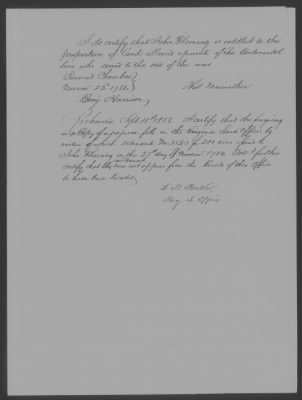 I do certify that John Fleming is entitled to the
proportion of land allowed a private of the Continental
line who served to the end of the war
Council Chamber } Thos Meriwether
22d 1784
Benj Harrison
Richmond Sept 18th 1858 I certify that the foregoing
is a Copy of a paper on file in the Virginia Land Office by
of which Warrant No 3123 for 200 acres issued to
John Fleming on the 27th day of 1784 & I further
certify that the does not appear from the Records of this Office
to have been located
Reg L. Office